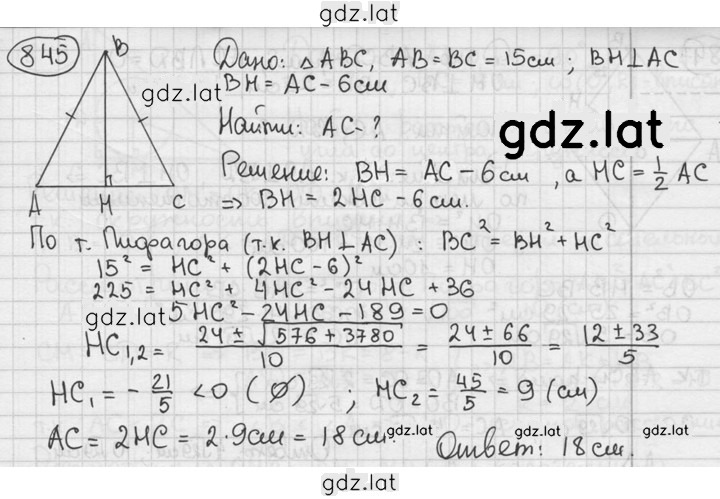 gdz.lat
845
B
Дано: △ABC, AB = BC = 15см; BH⊥AC
BH = AC - 6см
gdz.lat
Найти: AC - ?
gdz.lat
Решение: BH = AC - 6см, а HC = 1/2 AC
A H C
⇒ BH = 2HC - 6см.
По т. Пифагора (т.к. BH⊥AC): BC² = BH² + HC²
15² = HC² + (2HC - 6)²
225 = HC² + 4HC² - 24HC + 36
gdz.lat
5HC² - 24HC - 189 = 0
HC₁,₂ = (24 ± √(576 + 3780))/10 = (24 ± 66)/10 = (12 ± 33)/5
HC₁ = - 21/5 < 0 (∅) ; HC₂ = 45/5 = 9 (см)
AC = 2HC = 2·9см = 18см.
gdz.lat
Ответ: 18см.
gdz.lat
gdz.lat